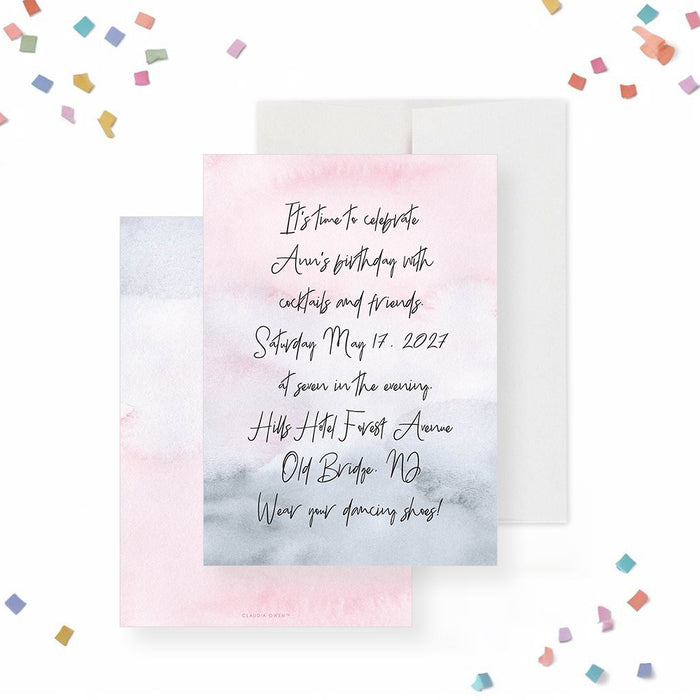 It's time to celebrate
Ann's birthday with
cocktails and friends.
Saturday May 17. 2027
at seven in the evening.
Hills Hotel Forest Avenue
Old Bridge. NJ
Wear your dancing shoes!
CLAUDIA OWEN™